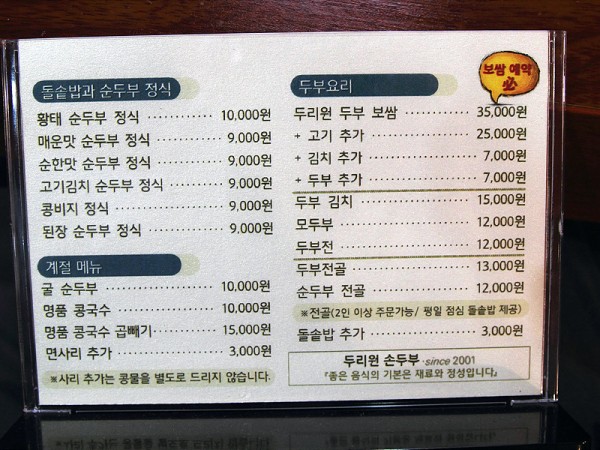 돌솥밥과 순두부 정식
황태 순두부 정식 10,000원
매운맛 순두부 정식 9,000원
순한맛 순두부 정식 9,000원
고기김치 순두부 정식 9,000원
콩비지 정식 9,000원
된장 순두부 정식 9,000원
계절 메뉴
굴 순두부 10,000원
명품 콩국수 10,000원
명품 콩국수 곱빼기 15,000원
면사리 추가 3,000원
※사리 추가는 콩물을 별도로 드리지 않습니다.
보쌈 예약
必
두부요리
두리원 두부 보쌈 35,000원
+ 고기 추가 25,000원
+ 김치 추가 7,000원
+ 두부 추가 7,000원
두부 김치 15,000원
모두부 12,000원
두부전 12,000원
두부전골 13,000원
순두부 전골 12,000원
※전골(2인 이상 주문가능/ 평일 점심 돌솥밥 제공)
돌솥밥 추가 3,000원
두리원 손두부 ·since 2001
『좋은 음식의 기본은 재료와 정성입니다』